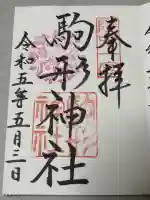 奉拝
駒形神社
令和五年五月三日